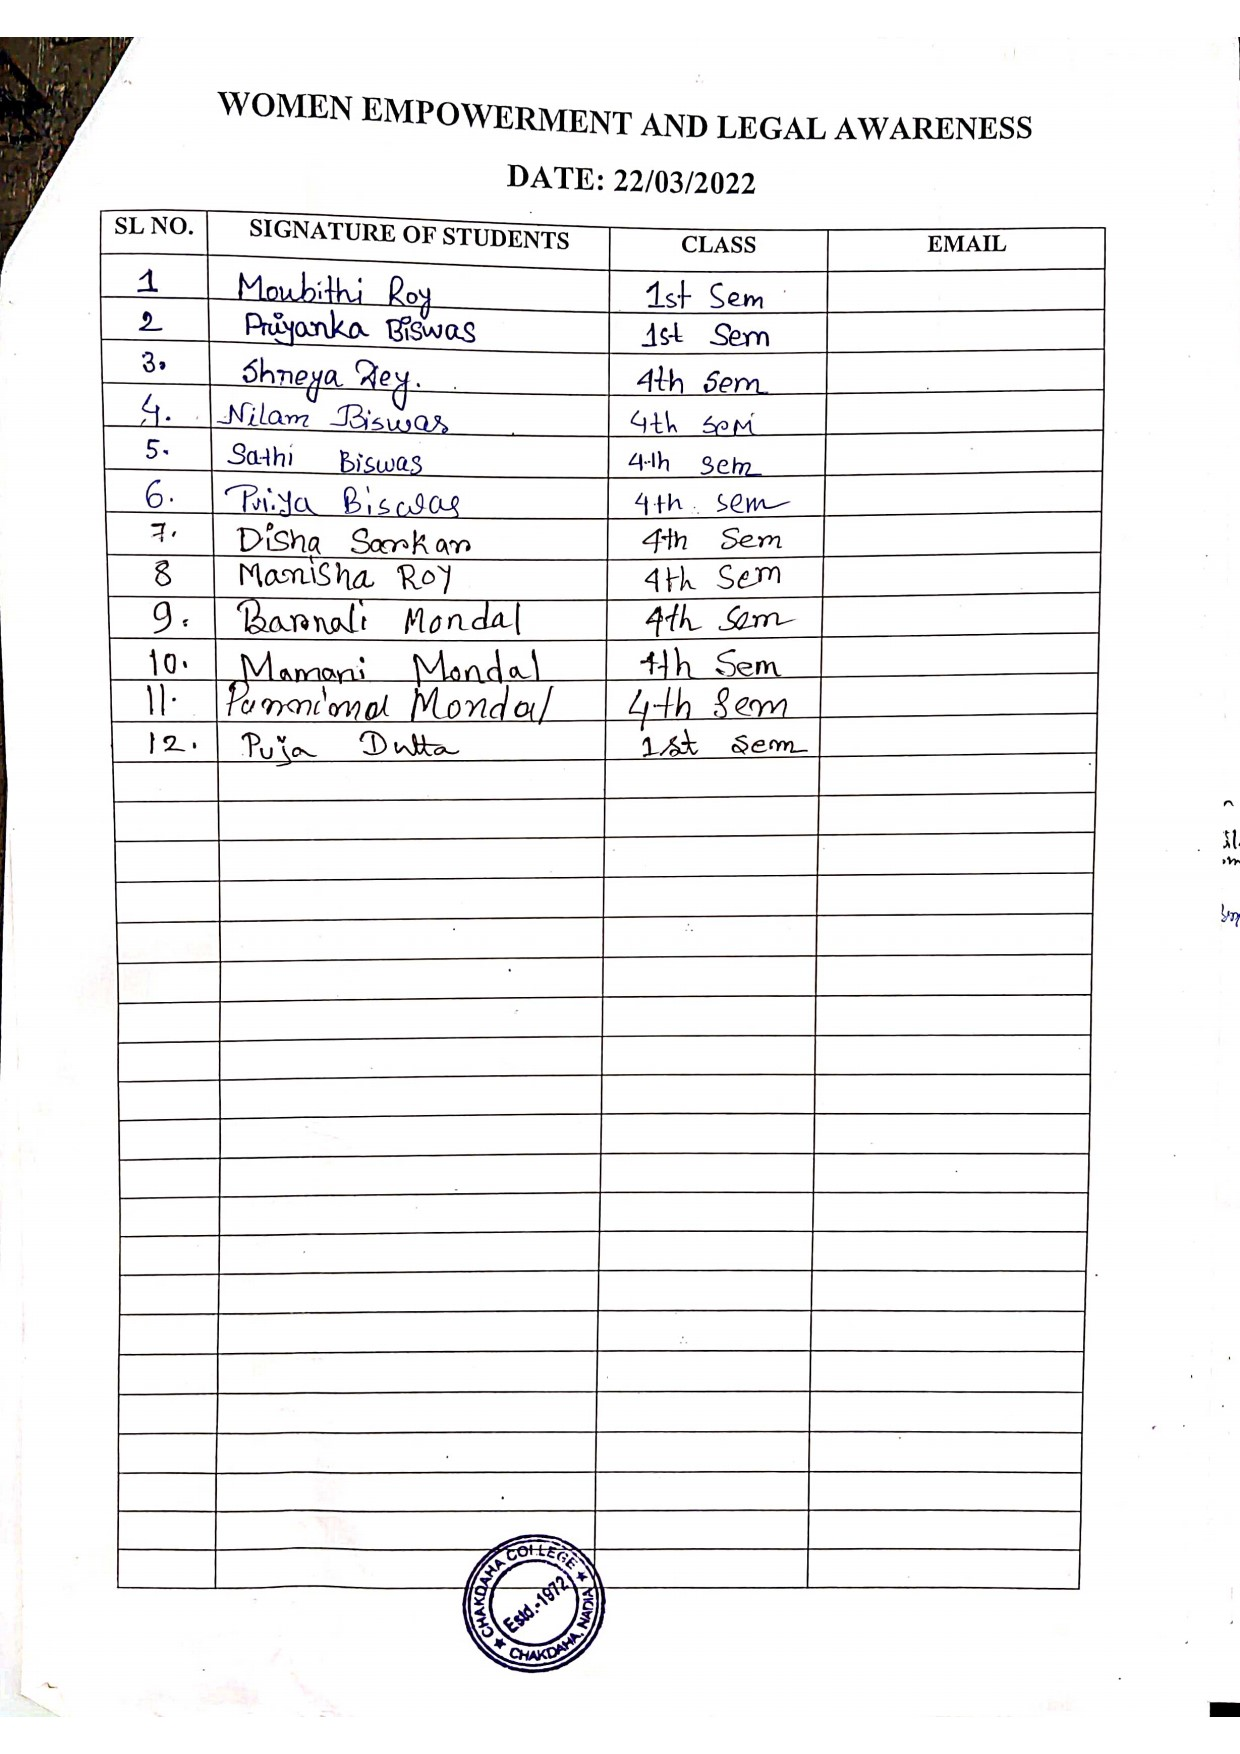 WOMEN EMPOWERMENT AND LEGAL AWARENESS
DATE: 22/03/2022
SL NO. SIGNATURE OF STUDENTS CLASS EMAIL
1 Moubithi Roy 1st Sem
2 Priyanka Biswas 1st Sem
3. Shreya Dey. 4th Sem
4. Nilam Biswas 4th sem
5. Sathi Biswas 4th sem
6. Priya Biswas 4th sem
7. Disha Sarkar 4th Sem
8 Manisha Roy 4th Sem
9. Barnali Mondal 4th Sem
10. Mamani Mondal 4th Sem
11. Mondal 4th Sem
12. Puja Dutta 1st Sem
CHAKDAHA COLLEGE
Estd.-1972
CHAKDAHA, NADIA